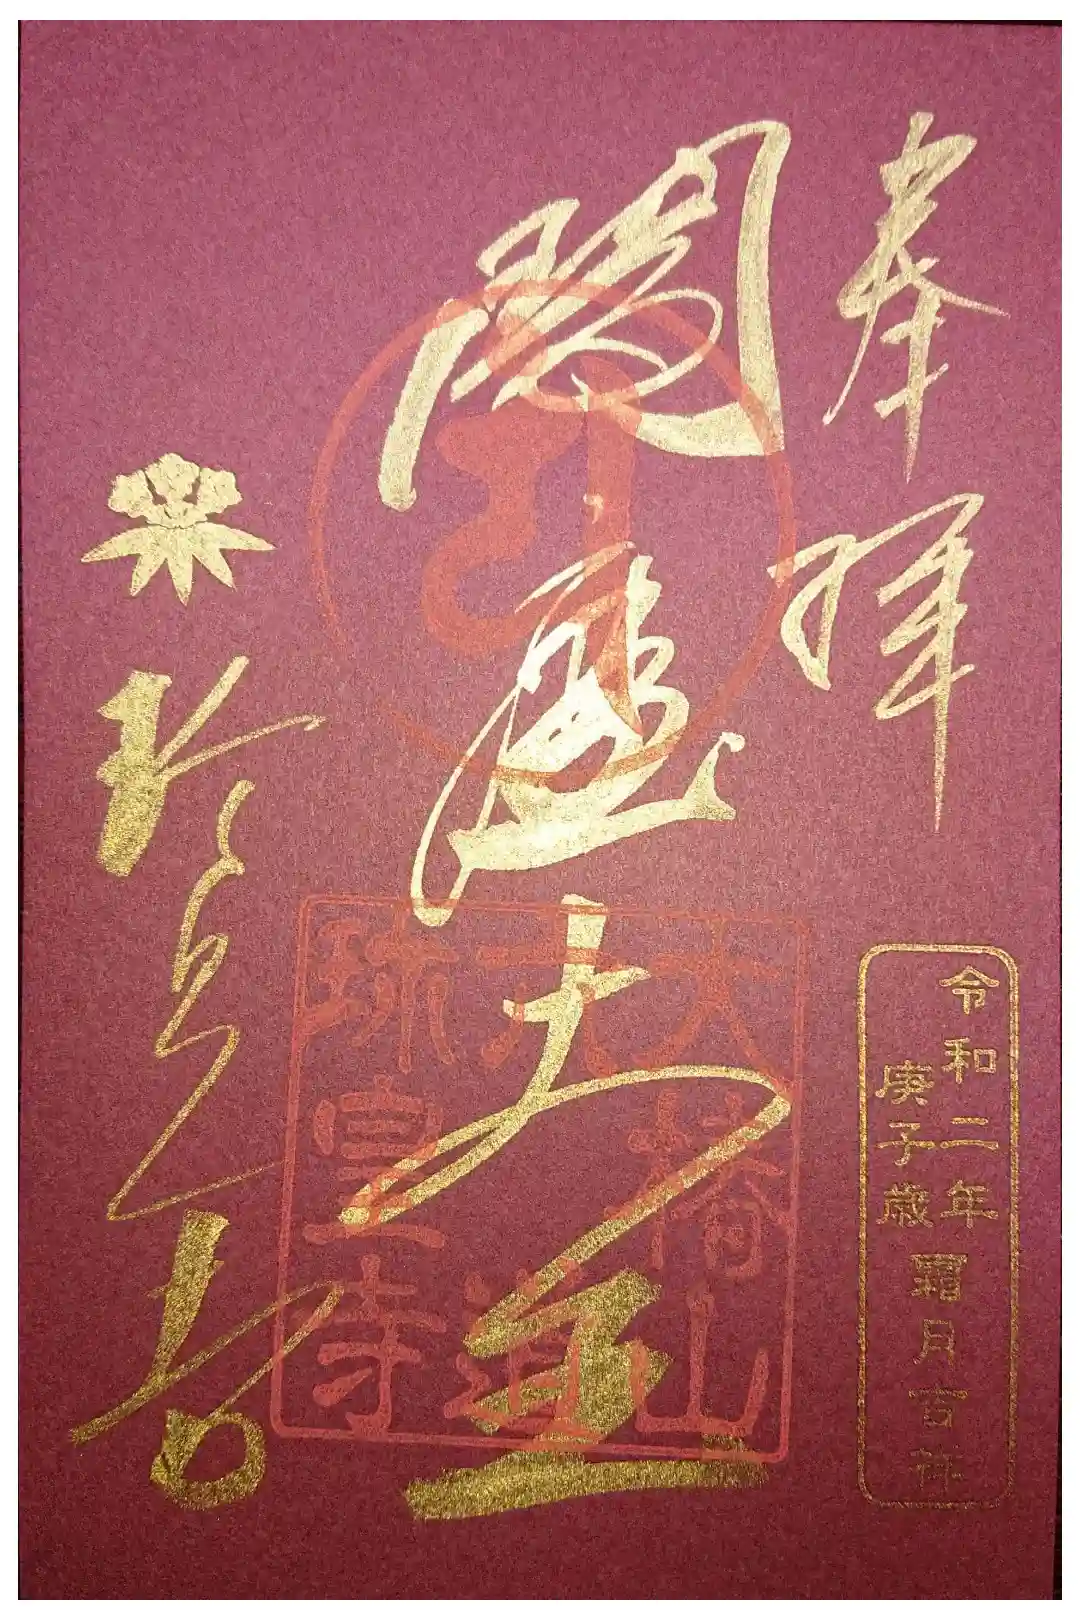 奉拝
令和二年
庚子歳
霜月吉祥
閻魔大王
大椿山
六道
珍皇寺
珍皇寺